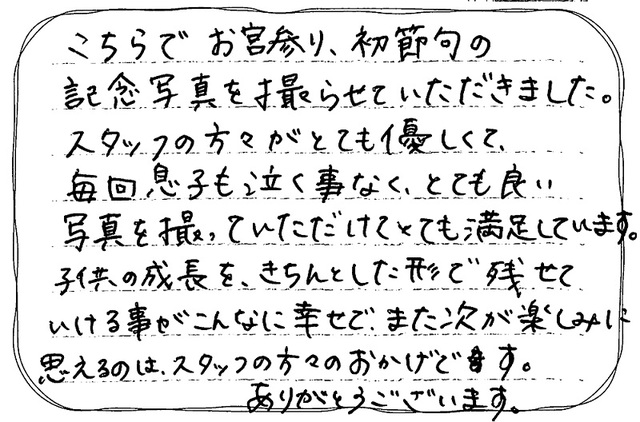 こちらで お宮参り、初節句の
記念写真を撮らせていただきました。
スタッフの方々がとても優しくて、
毎回息子も泣く事なく、とても良い
写真を撮っていただけてとても満足しています。
子供の成長を、きちんとした形で残せて
いける事がこんなに幸せで、また次が楽しみに
思えるのは、スタッフの方々のおかげです。
ありがとうございます。